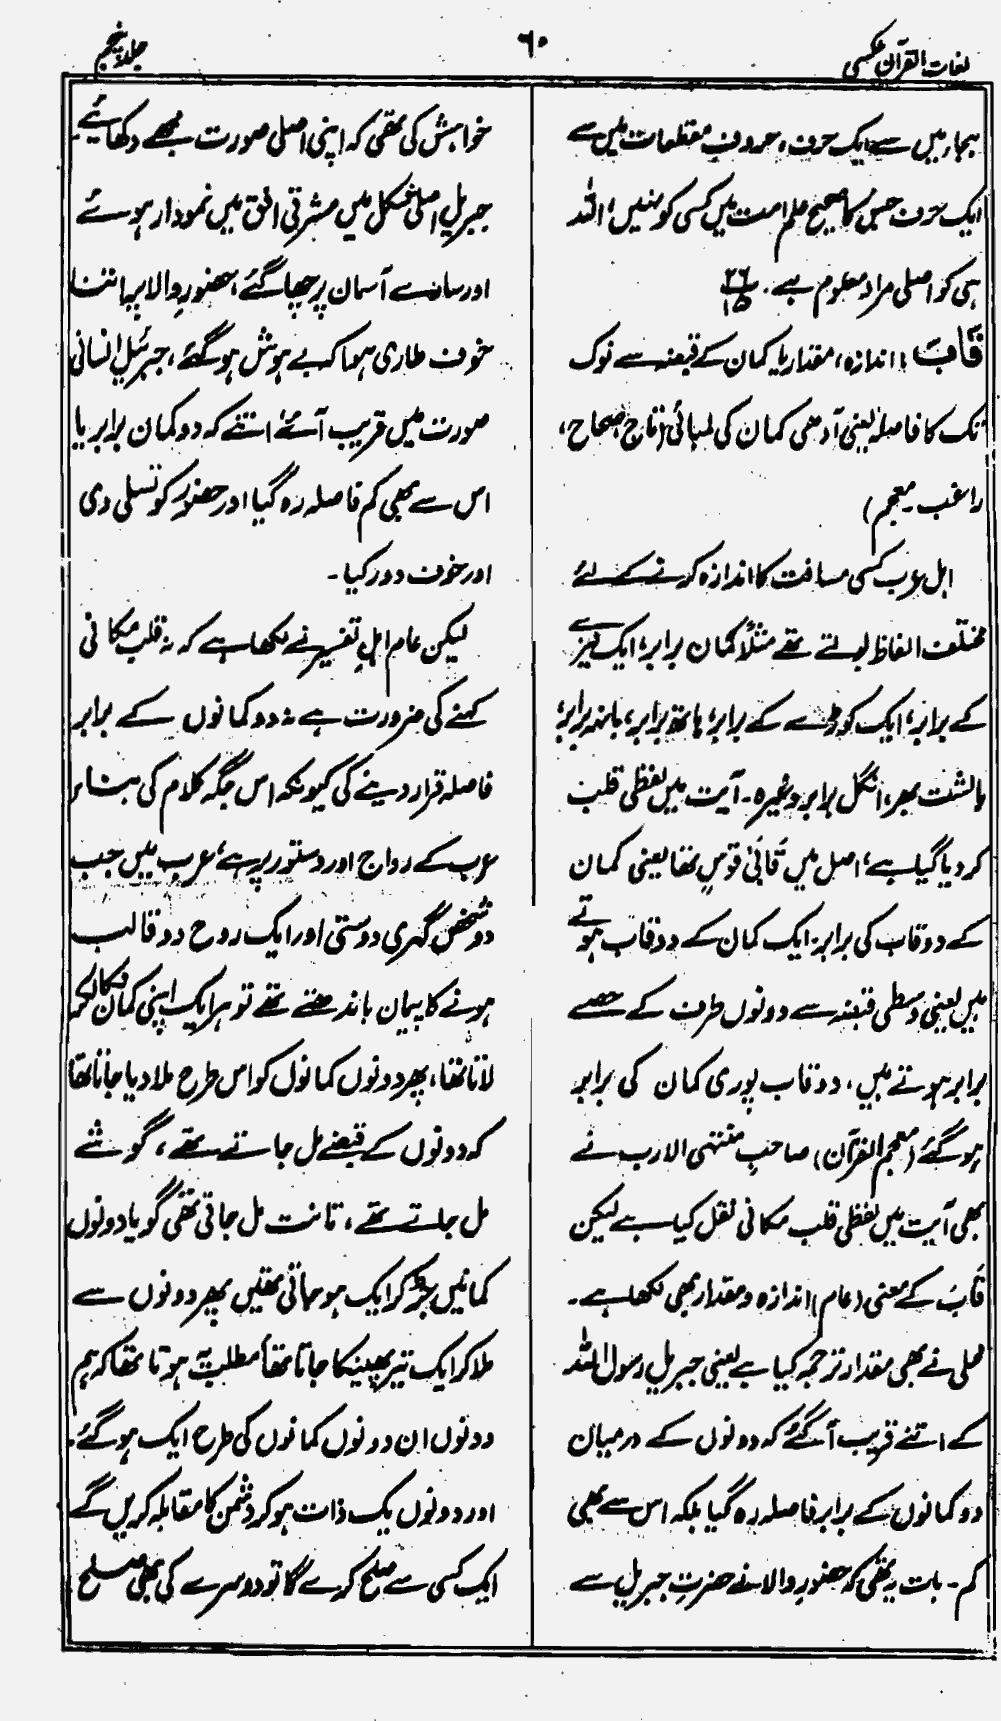 لغات القرآن عکسی
۶۰
جلد پنجم
ہجا میں سے ایک حرف، حروفِ مقطعات میں سے
ایک حرف جس کا صحیح علم امت میں کسی کو نہیں؛ اللہ
ہی کو اصلی مراد معلوم ہے۔ ۲۶/۱۵
قَابَ: اندازہ، مقدار یا کمان کے قبضہ سے نوک
تک کا فاصلہ یعنی آدھی کمان کی لمبائی (تاج، صحاح،
راغب۔ معجم)
اہل عرب کسی مسافت کا اندازہ کرنے کے لئے
مختلف الفاظ بولتے تھے مثلاً کمان برابر، ایک نیزے
کے برابر، ایک کوڑے کے برابر، ہاتھ برابر، بانہ برابر،
بالشت بھر، انگل برابر وغیرہ۔ آیت میں لفظی قلب
کر دیا گیا ہے، اصل میں قَابَیْ قَوْسٍ تھا یعنی کمان
کے دو قاب کی برابر، ایک کمان کے دو قاب ہوتے
ہیں یعنی وسطی قبضہ سے دونوں طرف کے حصے
برابر ہوتے ہیں، دو قاب پوری کمان کی برابر
ہو گئے (معجم القرآن) صاحبِ منتہی الارب نے
بھی آیت میں لفظی قلب مکانی نقل کیا ہے لیکن
قَابَ کے معنی (عام) اندازہ و مقدار بھی لکھا ہے۔
محلی نے بھی مقدار ترجمہ کیا ہے یعنی جبریل رسول اللہ
کے اتنے قریب آ گئے کہ دونوں کے درمیان
دو کمانوں کے برابر فاصلہ رہ گیا بلکہ اس سے بھی
کم۔ بات یہ تھی کہ حضورِ والا نے حضرتِ جبریل سے
خواہش کی تھی کہ اپنی اصلی صورت مجھے دکھائیے
جبریل اصلی شکل میں مشرقی افق میں نمودار ہوئے
اور سارے آسمان پر چھا گئے، حضورِ والا پر اتنا
خوف طاری ہوا کہ بے ہوش ہو گئے، جبرئیل انسانی
صورت میں قریب آئے اتنے کہ دو کمان برابر یا
اس سے بھی کم فاصلہ رہ گیا اور حضور کو تسلی دی
اور خوف دور کیا۔
لیکن عام اہلِ تفسیر نے لکھا ہے کہ نہ قلب مکانی
کہنے کی ضرورت ہے نہ دو کمانوں کے برابر
فاصلہ قرار دینے کی کیونکہ اس جگہ کلام کی بناء پر
عرب کے رواج اور دستور پر ہے، عرب میں جب
دو شخص گہری دوستی اور ایک روح دو قالب
ہونے کا پیمان باندھتے تھے تو ہر ایک اپنی کمان نکال کر
لاتا تھا، پھر دونوں کمانوں کو اس طرح ملا دیا جاتا تھا
کہ دونوں کے قبضے مل جاتے تھے، گوشے
مل جاتے تھے، تانت مل جاتی تھی گویا دونوں
کمانیں جڑ کر ایک ہو جاتی تھیں پھر دونوں سے
ملا کر ایک تیر پھینکا جاتا تھا مطلب یہ ہوتا تھا کہ ہم
دونوں ان دونوں کمانوں کی طرح ایک ہو گئے۔
اور دونوں یک ذات ہو کر دشمن کا مقابلہ کریں گے
ایک کسی سے صلح کرے گا تو دوسرے کی بھی صلح